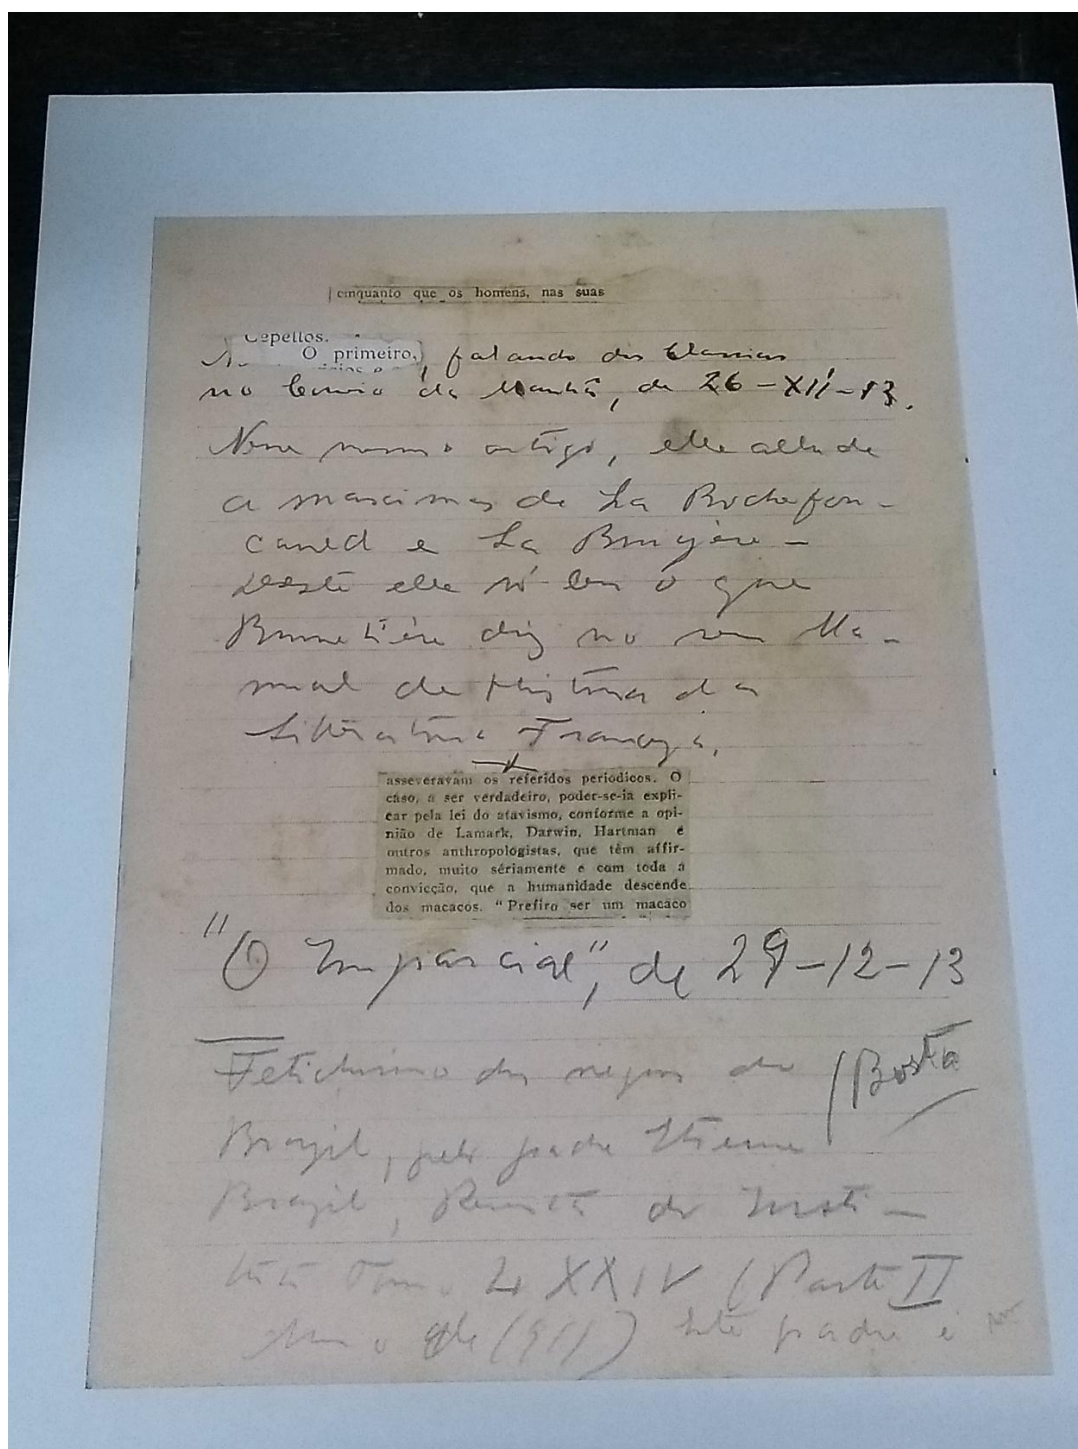 enquanto que os homens, nas suas
Cepellos.
O primeiro,
, falando dos Classicos
no Correio da Manhã, de 26-XII-13.
Nesse mesmo artigo, elle allude
a maximas de La Rochefou-
cauld e La Bruyère -
Deste elle só leu o que
Brunetière diz no seu Ma-
nual de Historia da
Litteratura Franceza.
asseveravam os referidos periodicos. O
caso, a ser verdadeiro, poder-se-ia expli-
car pela lei do atavismo, conforme a opi-
nião de Lamark, Darwin, Hartman e
outros anthropologistas, que têm affir-
mado, muito sériamente e com toda a
convicção, que a humanidade descende
dos macacos. "Prefiro ser um macaco
"O Imparcial", de 29-12-13
Fetichismo dos negros do (Bosta
Brazil, pelo padre Etienne
Brazil, Revista do Insti-
tuto Tomo LXXIV (Parte II
de (1911) Este padre é